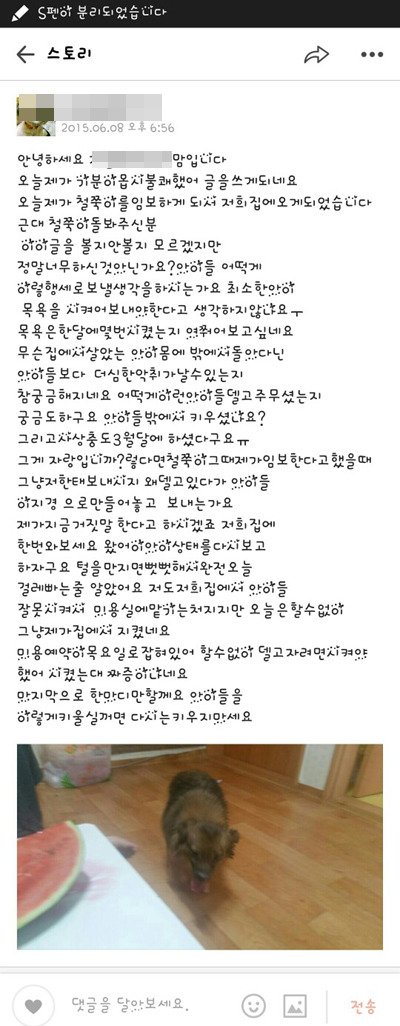 S펜이 분리되었습니다
스토리
2015.06.08 오후 6:56
안녕하세요 맘입니다
오늘제가 기분이몹시불쾌했어 글을쓰게되네요
오늘제가 철쭉이를임보하게 되서 저희집에오게되었습니다
근대 철쭉이돌봐주신분
이이글을 볼지안볼지 모르겠지만
정말너무하신것아닌가요?아이들 어떻게
이렇행세로보낼생각을하시는가요 최소한아이
목욕을 시켜어보내야한다고 생각하지않나요ㅜ
목욕은한달에몇번시켰는지 여쭤어보고싶네요
무슨집에서살았는 아이몸에 밖에서돌아다닌
아이들보다 더심한악취가날수있는지
참궁금해지네요 어떻게이런아이들델고주무셨는지
궁금도하구요 아이들밖에서 키우셨나요?
그리고사상충도3월달에 하셨다구요ㅠ
그게 자랑입니까?렇다면철쭉이그때제가임보한다고했을때
그냥저한태보내시지 왜델고있다가 아이들
이지경 으로만들어놓고 보내는가요
제가지금거짓말 한다고 하시겠죠 저희집에
한번와보세요 왔어이아이상태를다시보고
하자구요 털을만지면뻣뻣해서완전오늘
걸레빠는줄 알았어요 저도저희집에서 아이들
잘못시켜서 미용실에맡기는처지지만 오늘은할수없이
그냥제가집에서 지켰네요
미용예약이목요일로잡혀있어 할수없이 델고자려면시켜야
했어 시켰는대 짜증이나네요
마지막으로 한마디만할께요 아이들을
이렇게키울실꺼면 다시는키우지마세요
댓글을 달아보세요.
전송